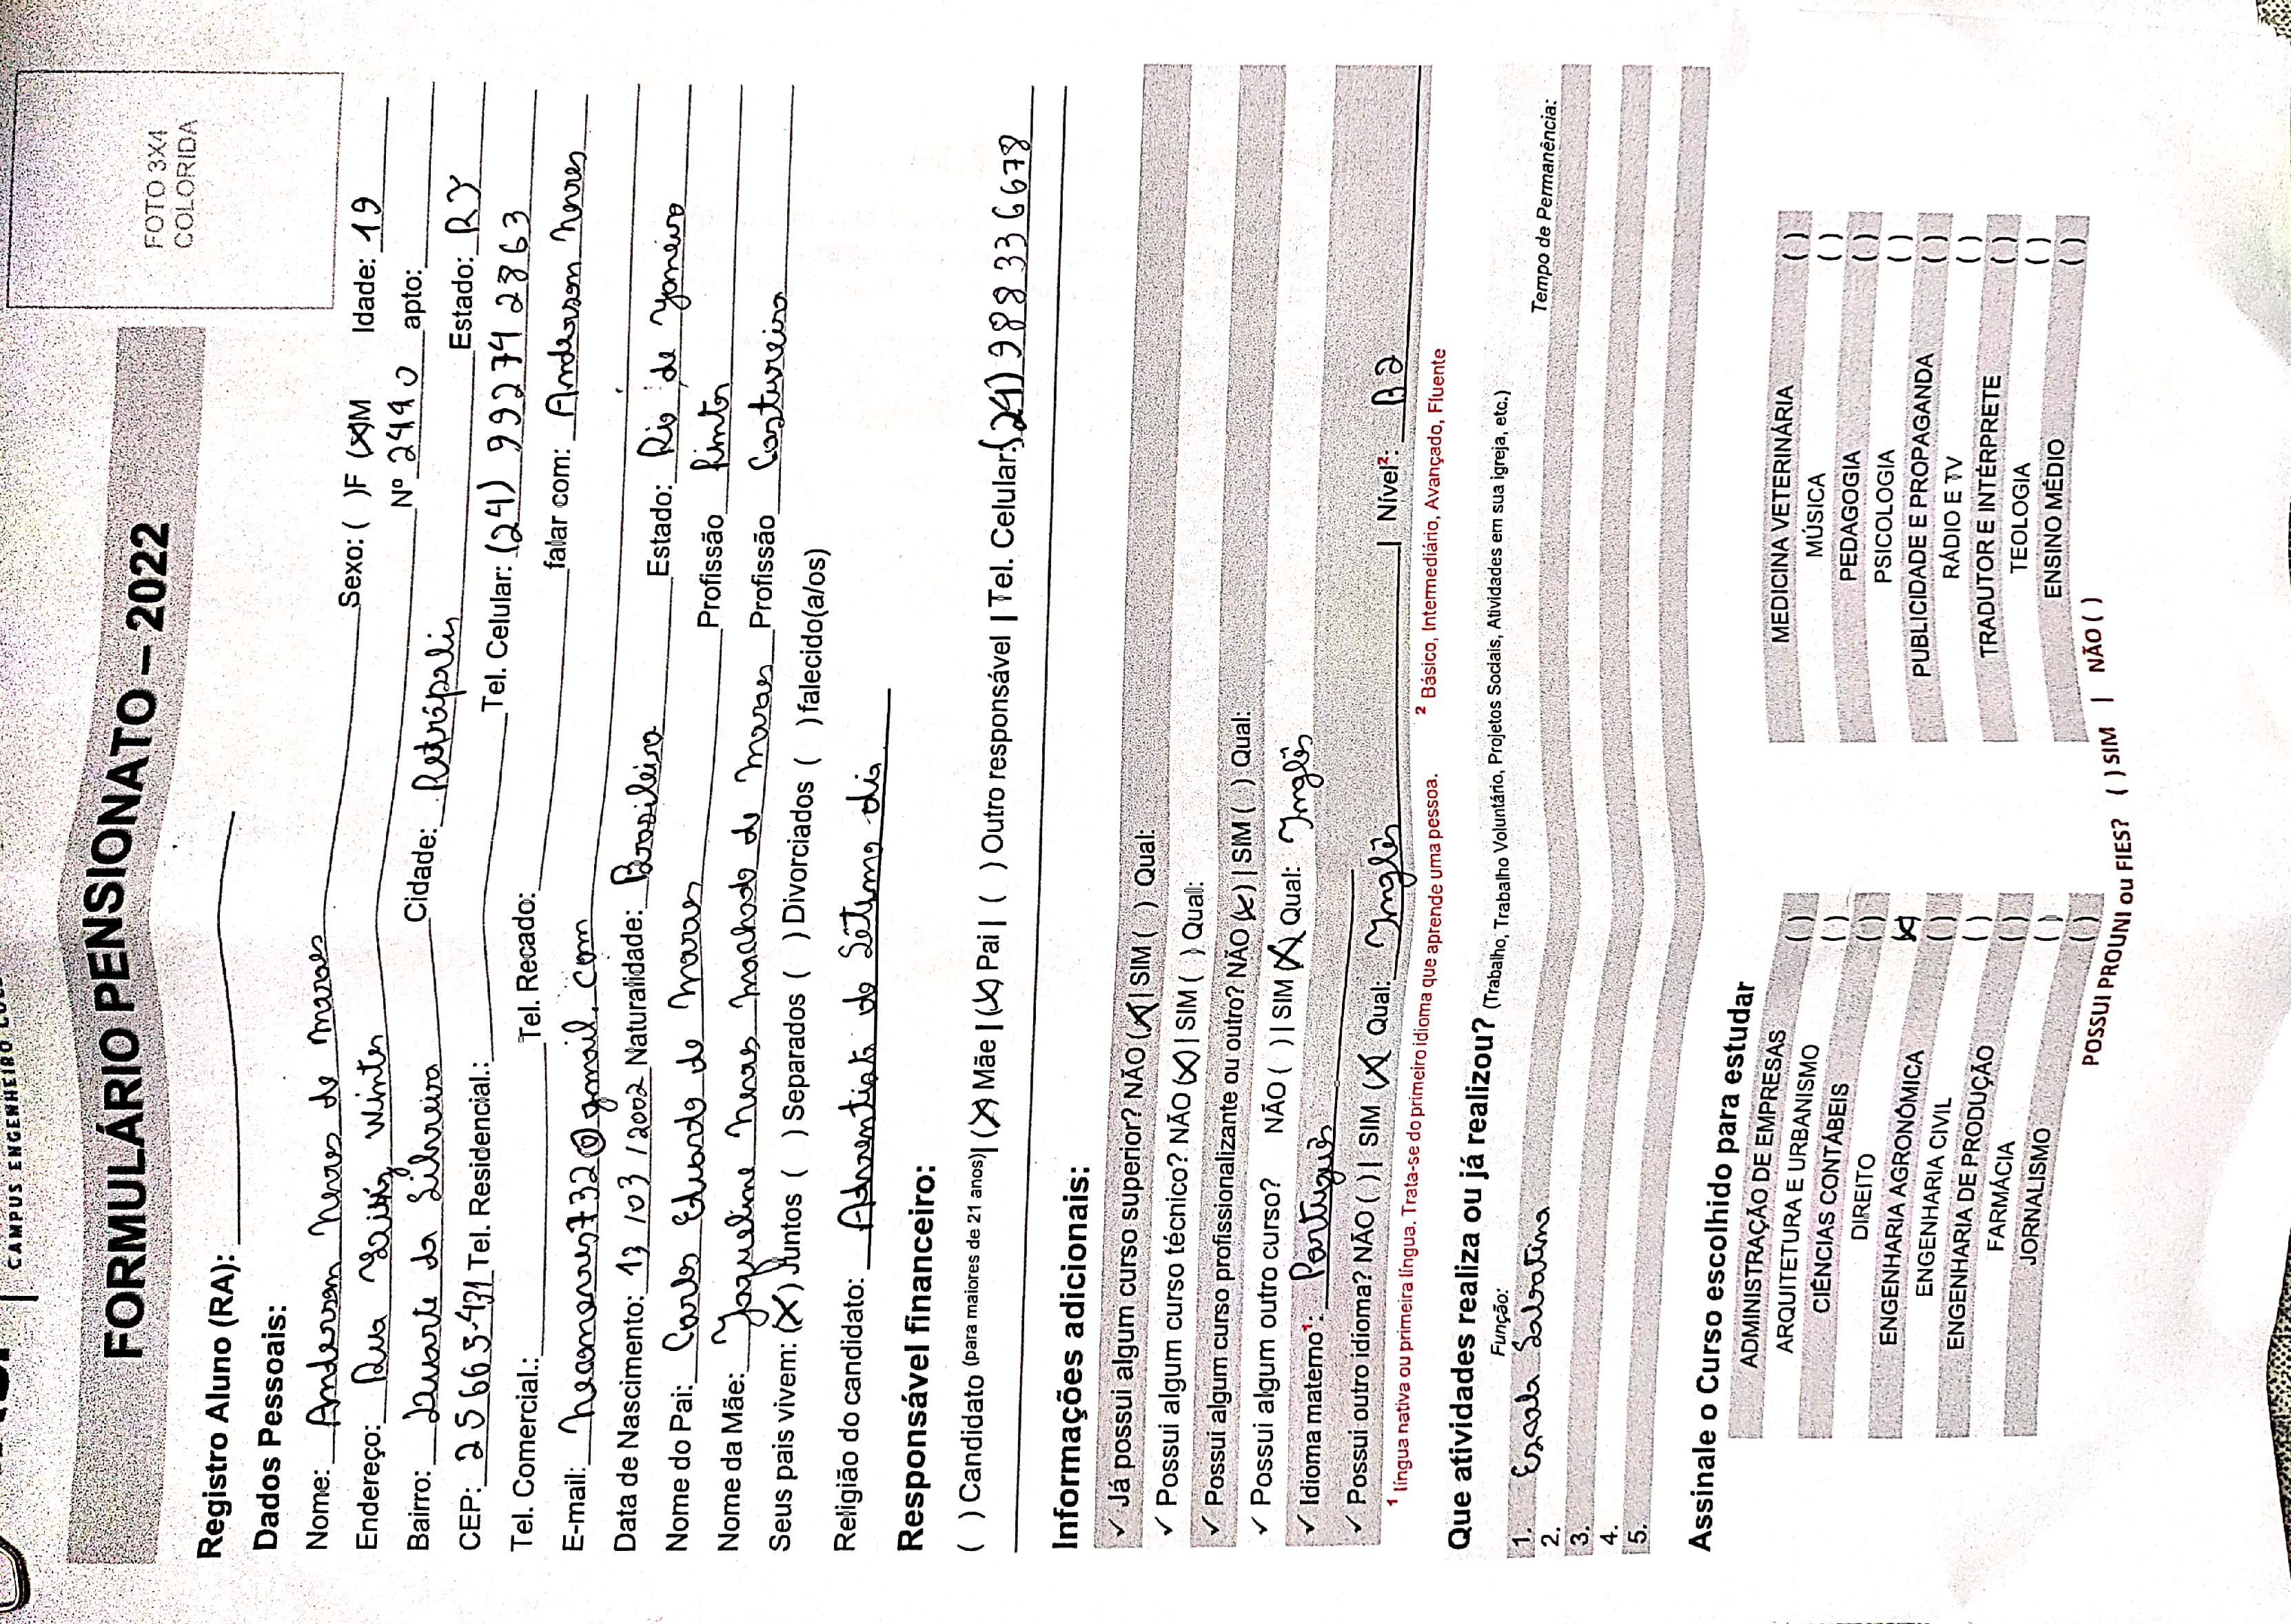 CAMPUS ENGENHEIRO
FORMULÁRIO PENSIONATO – 2022
FOTO 3X4
COLORIDA
Registro Aluno (RA):
Dados Pessoais:
Nome: Anderson Neves de Moraes Sexo: ( )F (X)M Idade: 19
Endereço: Rua Winter Nº 2490 apto:
Bairro: Duarte da Silveira Cidade: Petrópolis Estado: RJ
CEP: 25665-431 Tel. Residencial.: Tel. Celular: (24) 992742863
Tel. Comercial.: Tel. Recado: falar com: Anderson Neves
E-mail: neomerus732@gmail.com
Data de Nascimento: 13/03/2002 Naturalidade: Brasileira Estado: Rio de Janeiro
Nome do Pai: Carlos Eduardo de Moraes Profissão Pintor
Nome da Mãe: Jaqueline Neves Machado de Moraes Profissão Costureira
Seus pais vivem: (X) Juntos ( ) Separados ( ) Divorciados ( ) falecido(a/os)
Religião do candidato: Adventista do Sétimo dia
Responsável financeiro:
( ) Candidato (para maiores de 21 anos)| (X) Mãe | (X) Pai | ( ) Outro responsável | Tel. Celular: (24) 988336678
Informações adicionais:
✓ Já possui algum curso superior? NÃO (X) | SIM ( ) Qual:
✓ Possui algum curso técnico? NÃO (X) | SIM ( ) Qual:
✓ Possui algum curso profissionalizante ou outro? NÃO (X) | SIM ( ) Qual:
✓ Possui algum outro curso? NÃO ( ) | SIM (X) Qual: Inglês
✓ Idioma materno¹: Português
✓ Possui outro idioma? NÃO ( ) | SIM (X) Qual: Inglês | Nível²: A2
¹ língua nativa ou primeira língua. Trata-se do primeiro idioma que aprende uma pessoa. ² Básico, Intermediário, Avançado, Fluente
Que atividades realiza ou já realizou? (Trabalho, Trabalho Voluntário, Projetos Sociais, Atividades em sua igreja, etc.)
Função: Tempo de Permanência:
1. Escola Sabatina
2.
3.
4.
5.
Assinale o Curso escolhido para estudar
ADMINISTRAÇÃO DE EMPRESAS ( ) MEDICINA VETERINÁRIA ( )
ARQUITETURA E URBANISMO ( ) MÚSICA ( )
CIÊNCIAS CONTÁBEIS ( ) PEDAGOGIA ( )
DIREITO ( ) PSICOLOGIA ( )
ENGENHARIA AGRONÔMICA (X) PUBLICIDADE E PROPAGANDA ( )
ENGENHARIA CIVIL ( ) RÁDIO E TV ( )
ENGENHARIA DE PRODUÇÃO ( ) TRADUTOR E INTÉRPRETE ( )
FARMÁCIA ( ) TEOLOGIA ( )
JORNALISMO ( ) ENSINO MÉDIO ( )
POSSUI PROUNI ou FIES? ( ) SIM | NÃO ( )